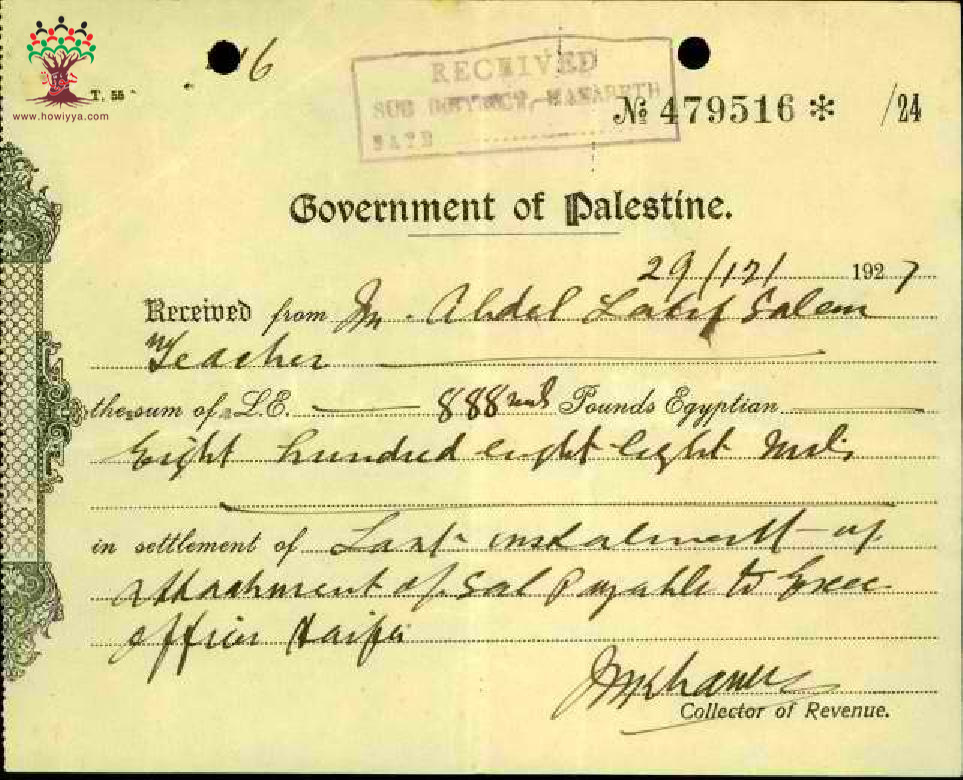 16
RECEIVED
SUB DISTRICT, NAZARETH
DATE
T. 55
www.howiyya.com
№ 479516 * /24
Government of Palestine.
29/12/ 1927
Received from M. Abdel Latif Salem
Teacher
the sum of L.E. 888 mls Pounds Egyptian
Eight hundred eight eight Mils
in settlement of Last instalment of
attachment of Sal payable to Exec
officer Haifa
Collector of Revenue.